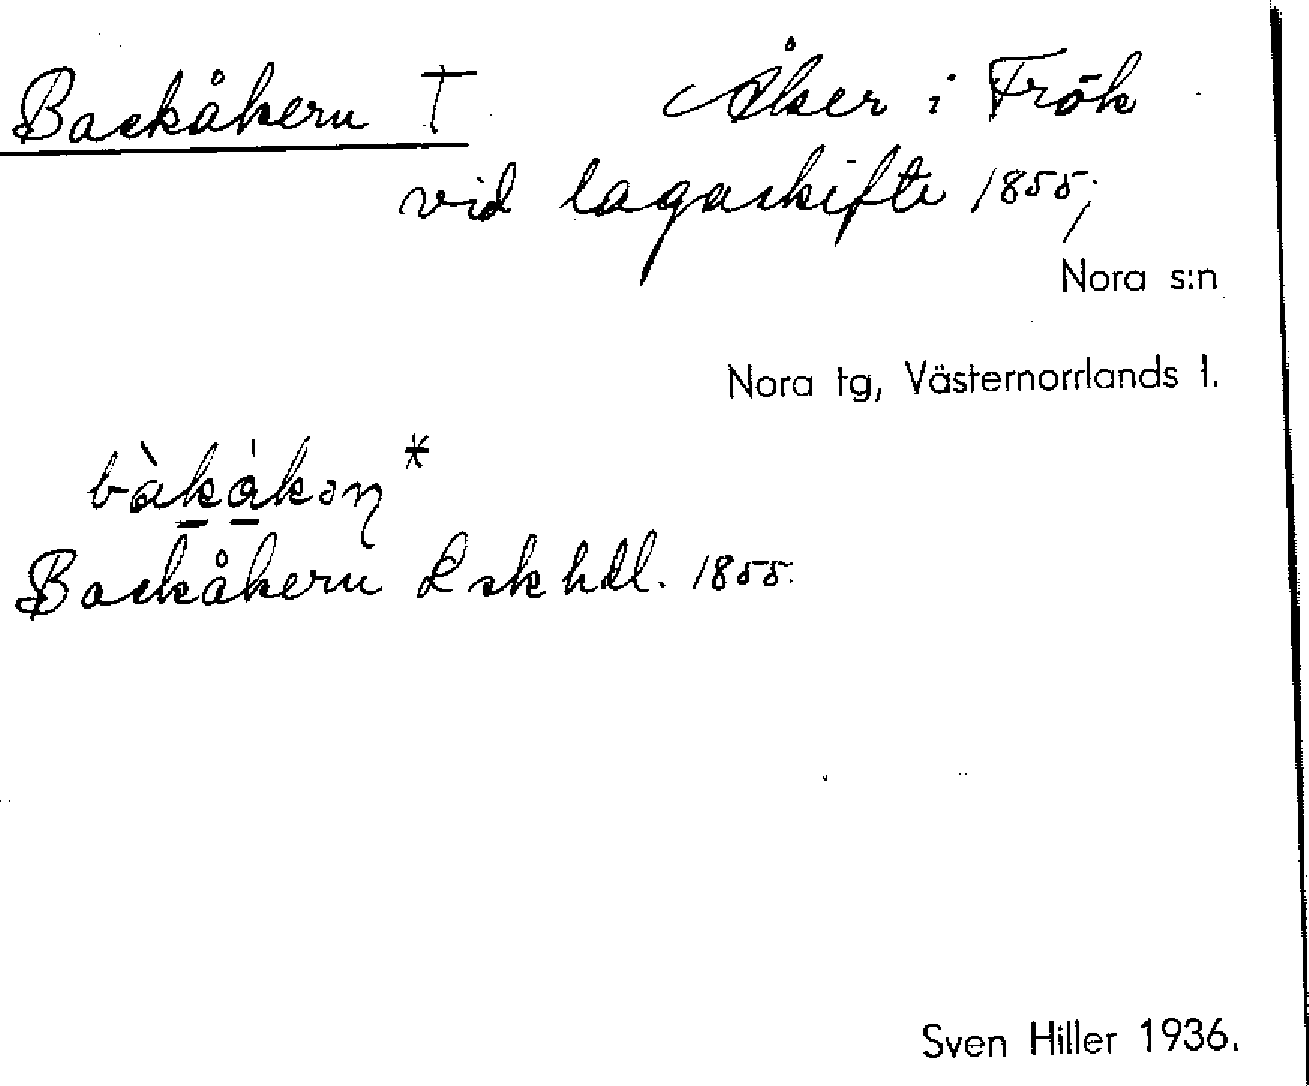 Backåkern † Åker i Frök
vid lagaskifte 1855;
Nora s:n
Nora tg, Västernorrlands l.
bàkàkəɳ *
Backåkern Lskhdl. 1855.
Sven Hiller 1936.